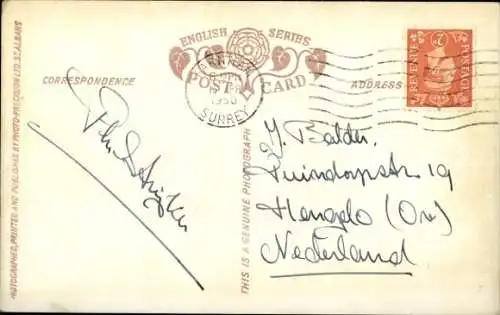 ENGLISH SERIES
POST CARD
CORRESPONDENCE
ADDRESS
1950
SURREY
POSTAGE
REVENUE
2
J. Balder.
Tuindorpstr 19
Hengelo (Ov)
Nederland
THIS IS A GENUINE PHOTOGRAPH
PHOTOGRAPHED, PRINTED AND PUBLISHED BY PHOTO-PRECISION LTD. ST. ALBANS